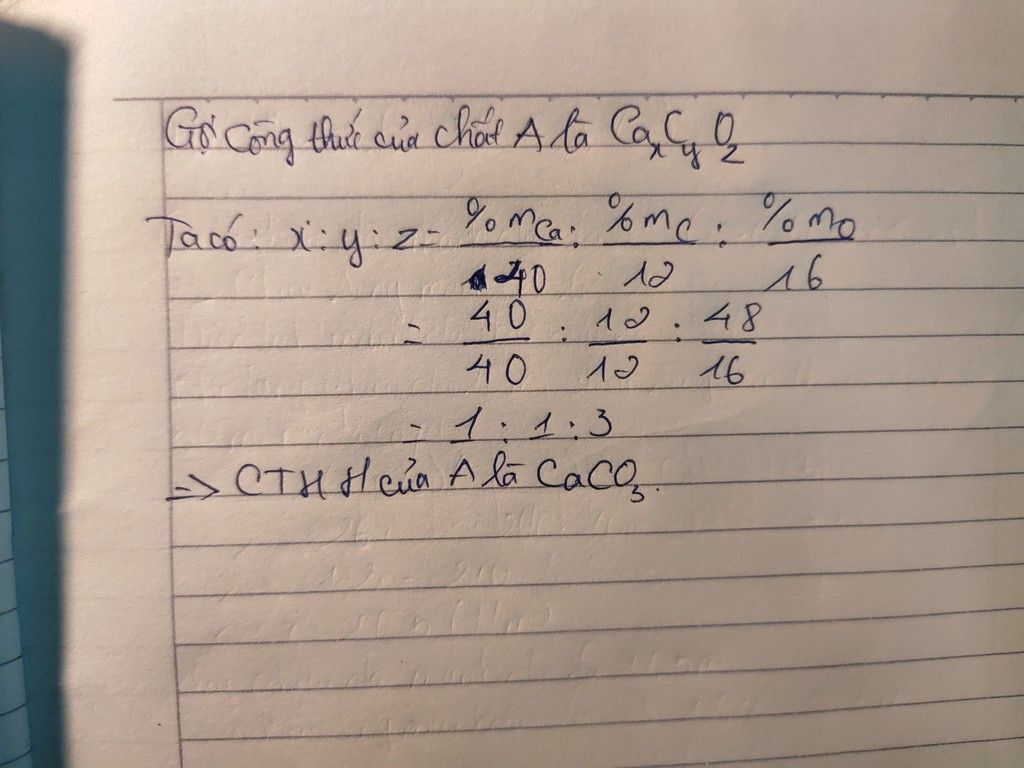 Gọi Công thức của chất A là CaxCyOz
Ta có: x:y:z= %mCa/40 : %mC/12 : %mO/16
= 40/40 : 12/12 : 48/16
= 1:1:3
=> CTHH của A là CaCO3.